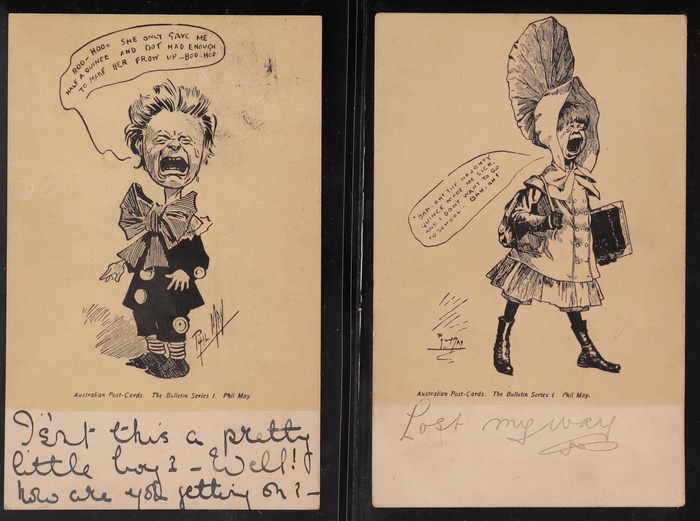 BOO-HOO= SHE ONLY GAVE ME
HALF A QUINCE AND DOT HAD ENOUGH
TO MAKE HER FROW UP-BOO-HOO-
PHIL MAY
Australian Post-Cards. The Bulletin Series I. Phil May.
Is'nt this a pretty
little boy? - Well!
how are you getting on? -
BAH-AH! THE NAUGHTY
QUINCE MADE ME SICK.
AND I DON'T WANT TO GO
TO SCHOOL - BAH-AH!
PHIL MAY
Australian Post-Cards. The Bulletin Series I Phil May.
Lost my way